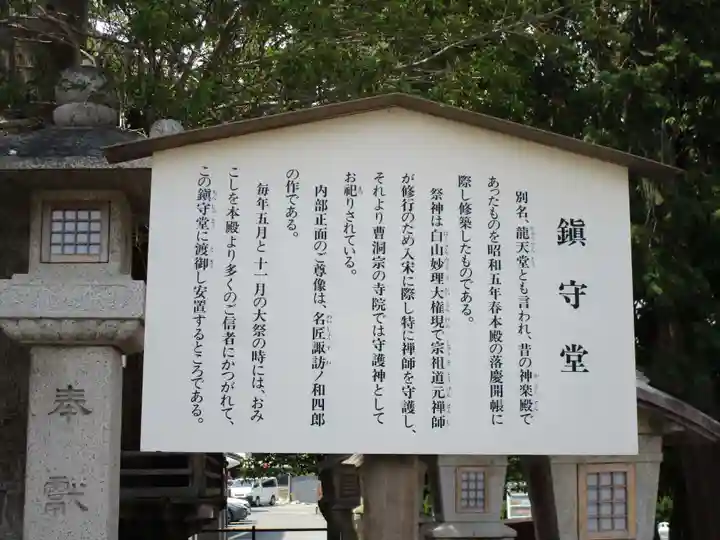 鎮守堂
別名、龍天堂とも言われ、昔の神楽殿で
あったものを昭和五年春本殿の落慶開帳に
際し修築したものである。
祭神は白山妙理大権現で宗祖道元禅師
が修行のため入宋に際し特に禅師を守護し、
それより曹洞宗の寺院では守護神として
お祀りされている。
内部正面のご尊像は、名匠諏訪ノ和四郎
の作である。
毎年五月と十一月の大祭の時には、おみ
こしを本殿より多くのご信者にかつがれて、
この鎮守堂に渡御し安置するところである。
奉献